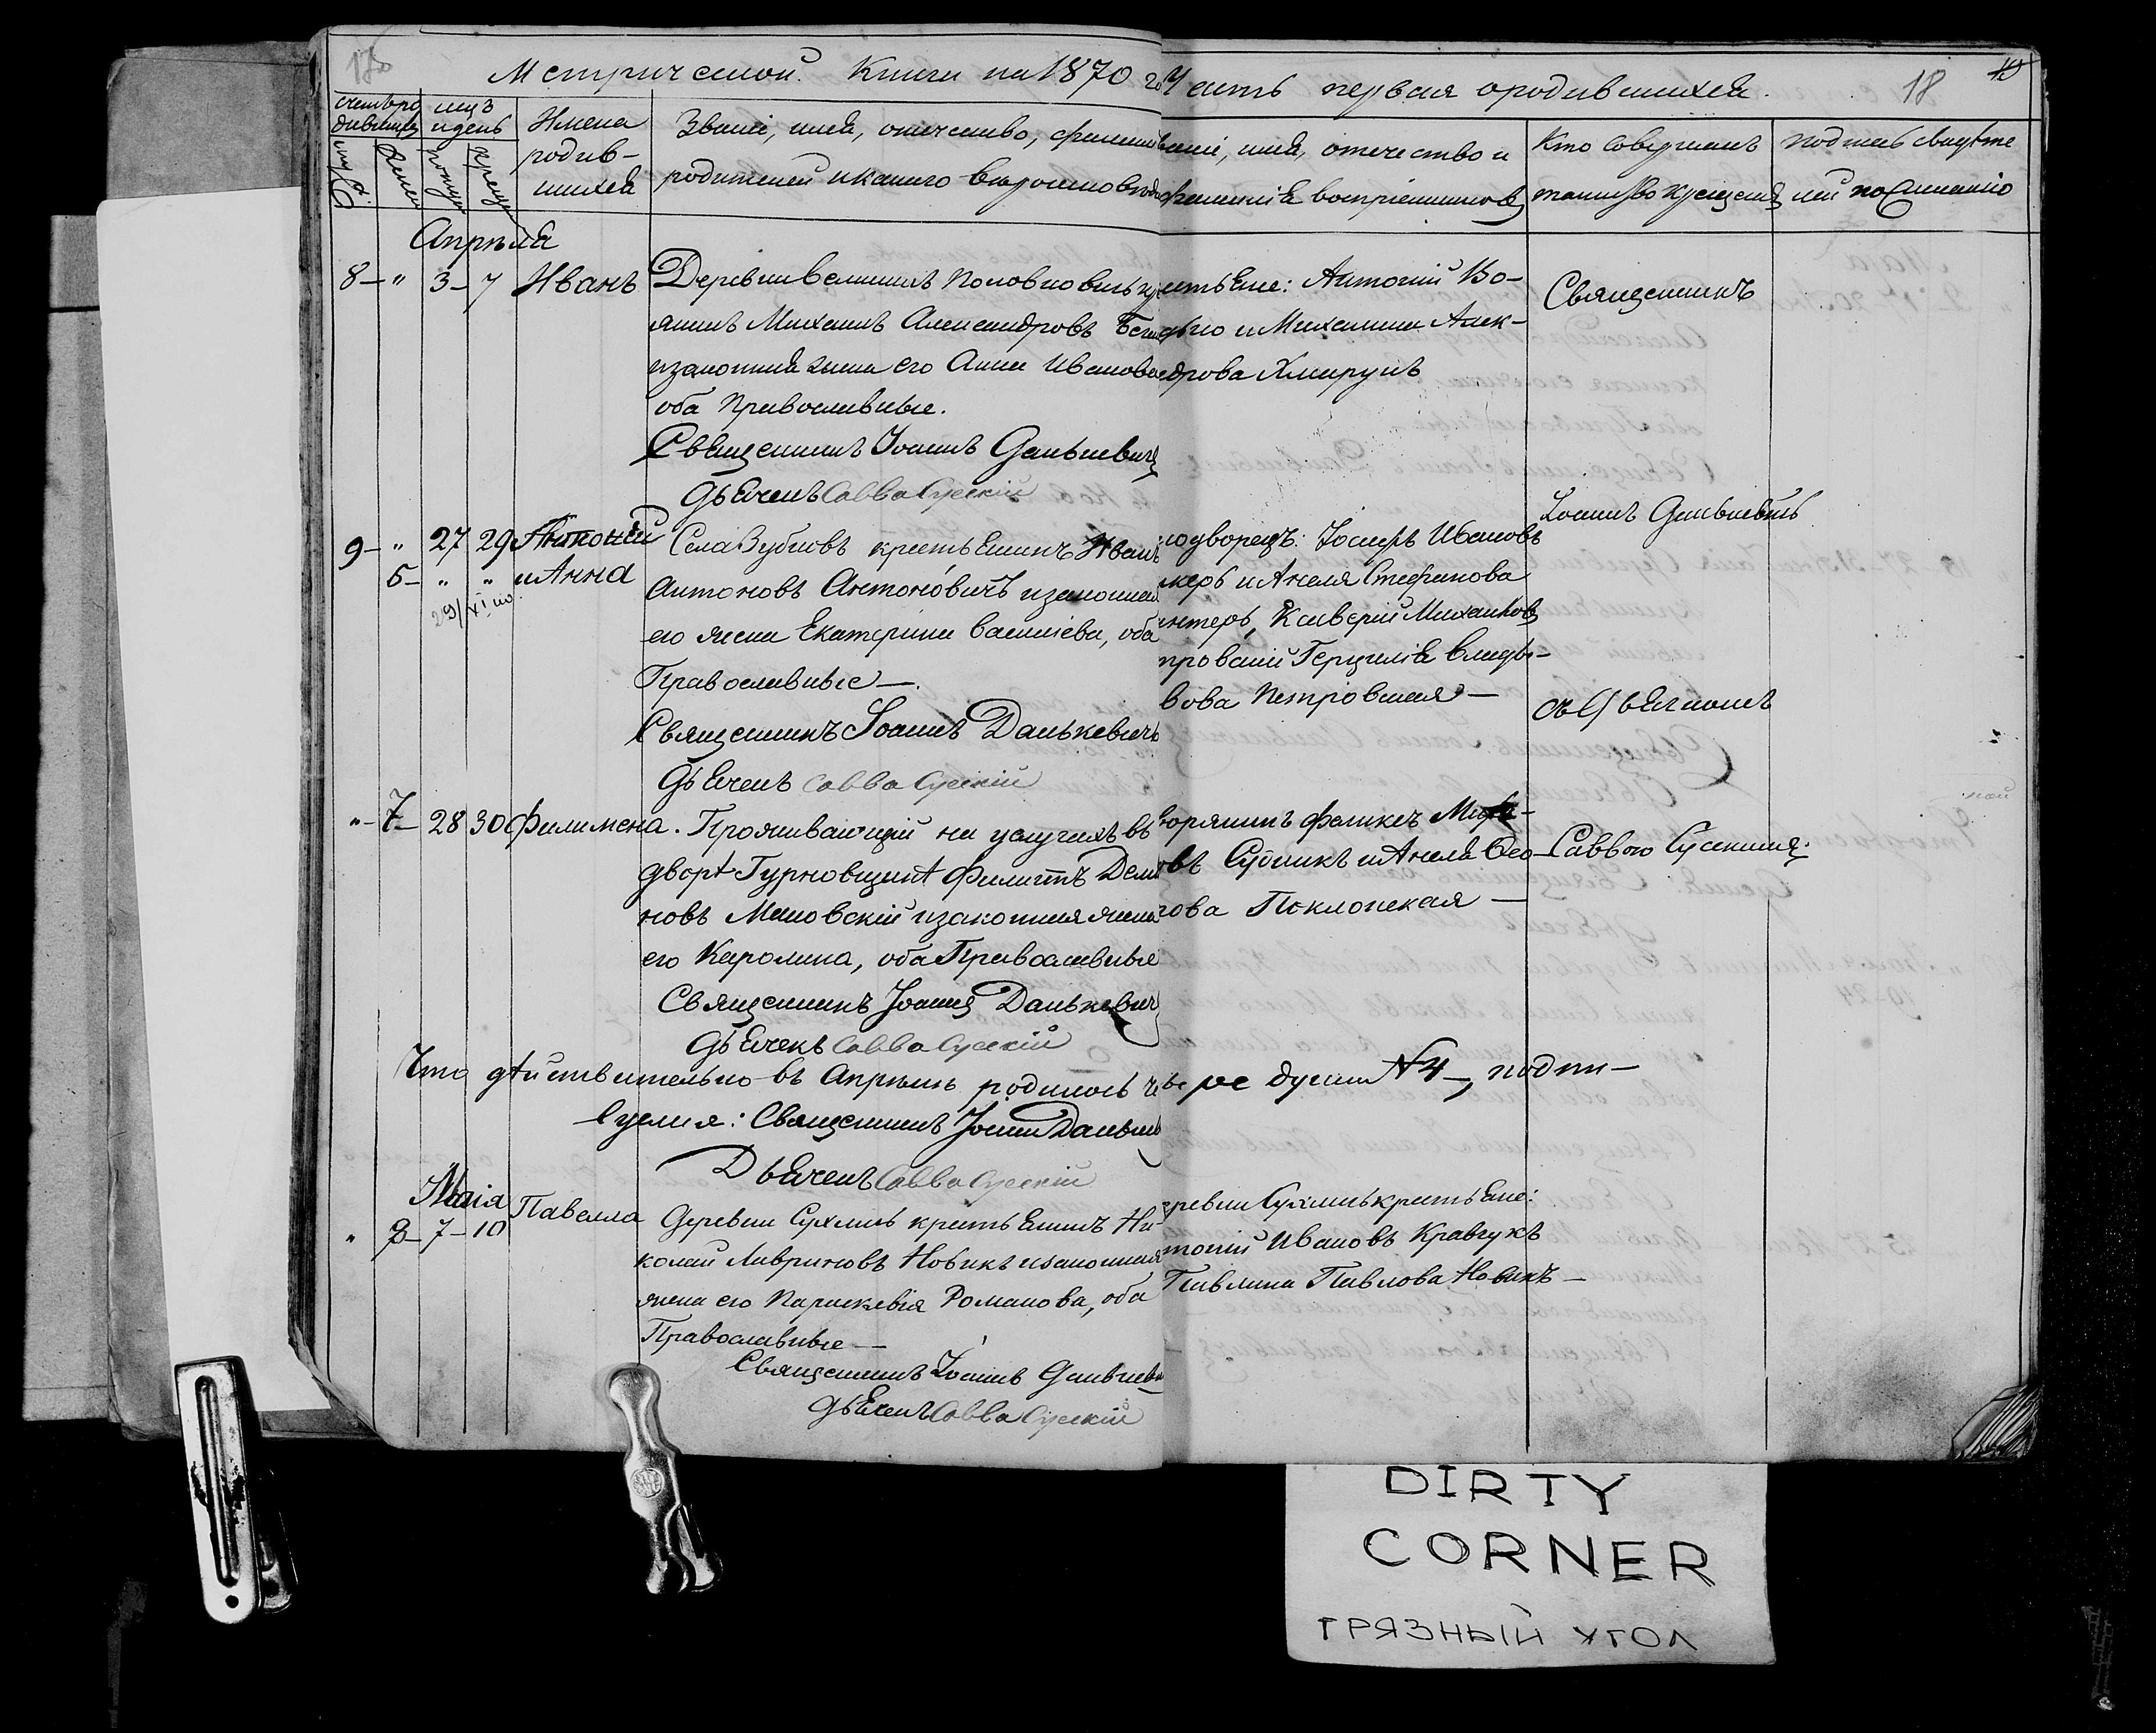 Метрической Книги на 1870 го
Часть первая о родившихся.
18
счетъ ро
дившихся
мцъ
и день
Имена
родив-
шихся
Званіе, имя, отчество, фамилія
родителей и какого вѣроисповѣда
званіе, имя, отечество и
фамилія воспріемниковъ
Кто совершалъ
таинство крещенія
подпись свидѣте
лей по желанію
Апрѣля
8 - " 3 - 7 Иванъ
Деревни Великихъ Половковичъ кр
янинъ Михаилъ Александровъ
и законная жена его Анна Иванова
оба Православные.
Священникъ Іоаннъ Данькевичъ
Дьячекъ Савва Сускій
стьяне: Антоній Во-
и Михалина Алек-
дрова Хмарукъ
Священникъ
9 - " 27 29 Антоній
5 - " " и Анна
29/XI
Села Зубковъ крестьянинъ Иванъ
Антоновъ Антоновичъ и законная
его жена Екатерина Василіева, оба
Православные —.
Священникъ Іоаннъ Данькевичъ
Дьячекъ Савва Сускій
нодворецъ: Іосифъ Ивановъ
и Анеля Стефанова
Ксаверій Михайловъ
Герцилія Влады-
вова Петровская —
Іоаннъ Данькевичъ
съ Дьячкомъ
" - 7 - 28 30 Филимена.
Проживающій на услугахъ въ
дворѣ Гурновщинѣ Филиппъ Деми
новъ Маковскій и законная жена
его Каролина, оба Православные
Священникъ Іоаннъ Данькевичъ
Дьячекъ Савва Сускій
ворянинъ Феликсъ
овъ и Анеля Ѳео-
това Поклонская —
Саввою Сускимъ.
Что дѣйствительно въ Апрѣлѣ родилось че
ве ре души № 4 —, подпи —
Священникъ Іоаннъ Данькев
Дьячекъ Савва Сускій
Маія
" 8 - 7 - 10 Павелла
Деревни Сухличь крестьянинъ Ни-
колай Лавриновъ Новикъ и законная
жена его Параскевія Романова, оба
Православные —
Священникъ Іоаннъ Данькеви
Дьячекъ Савва Сускій
еревни Сухличь крестьяне:
тоній Ивановъ Кравчукъ
Павлина Павлова Новикъ —
DIRTY
CORNER
ГРЯЗНЫЙ УГОЛ